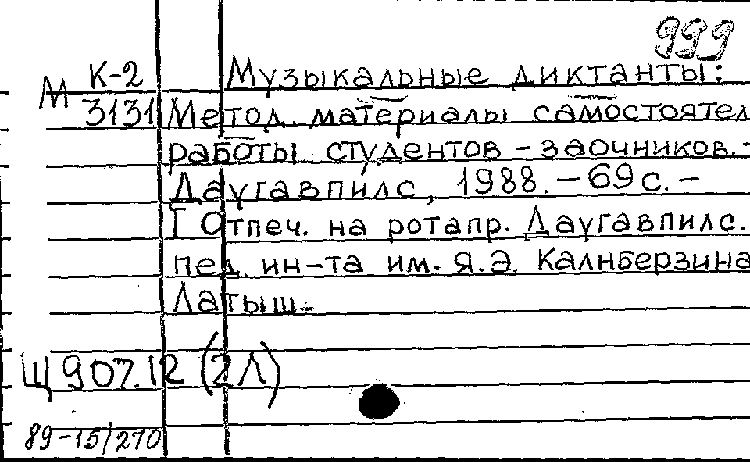 999
М К-2 Музыкальные диктанты:
3131 Метод. материалы самостоятел
работы студентов - заочников. -
Даугавпилс, 1988. - 69 с. -
Отпеч. на ротапр. Даугавпилс.
пед. ин-та им. Я.Э. Калнберзина
Латыш.
Щ 907.12 (2Л)
89-15/270